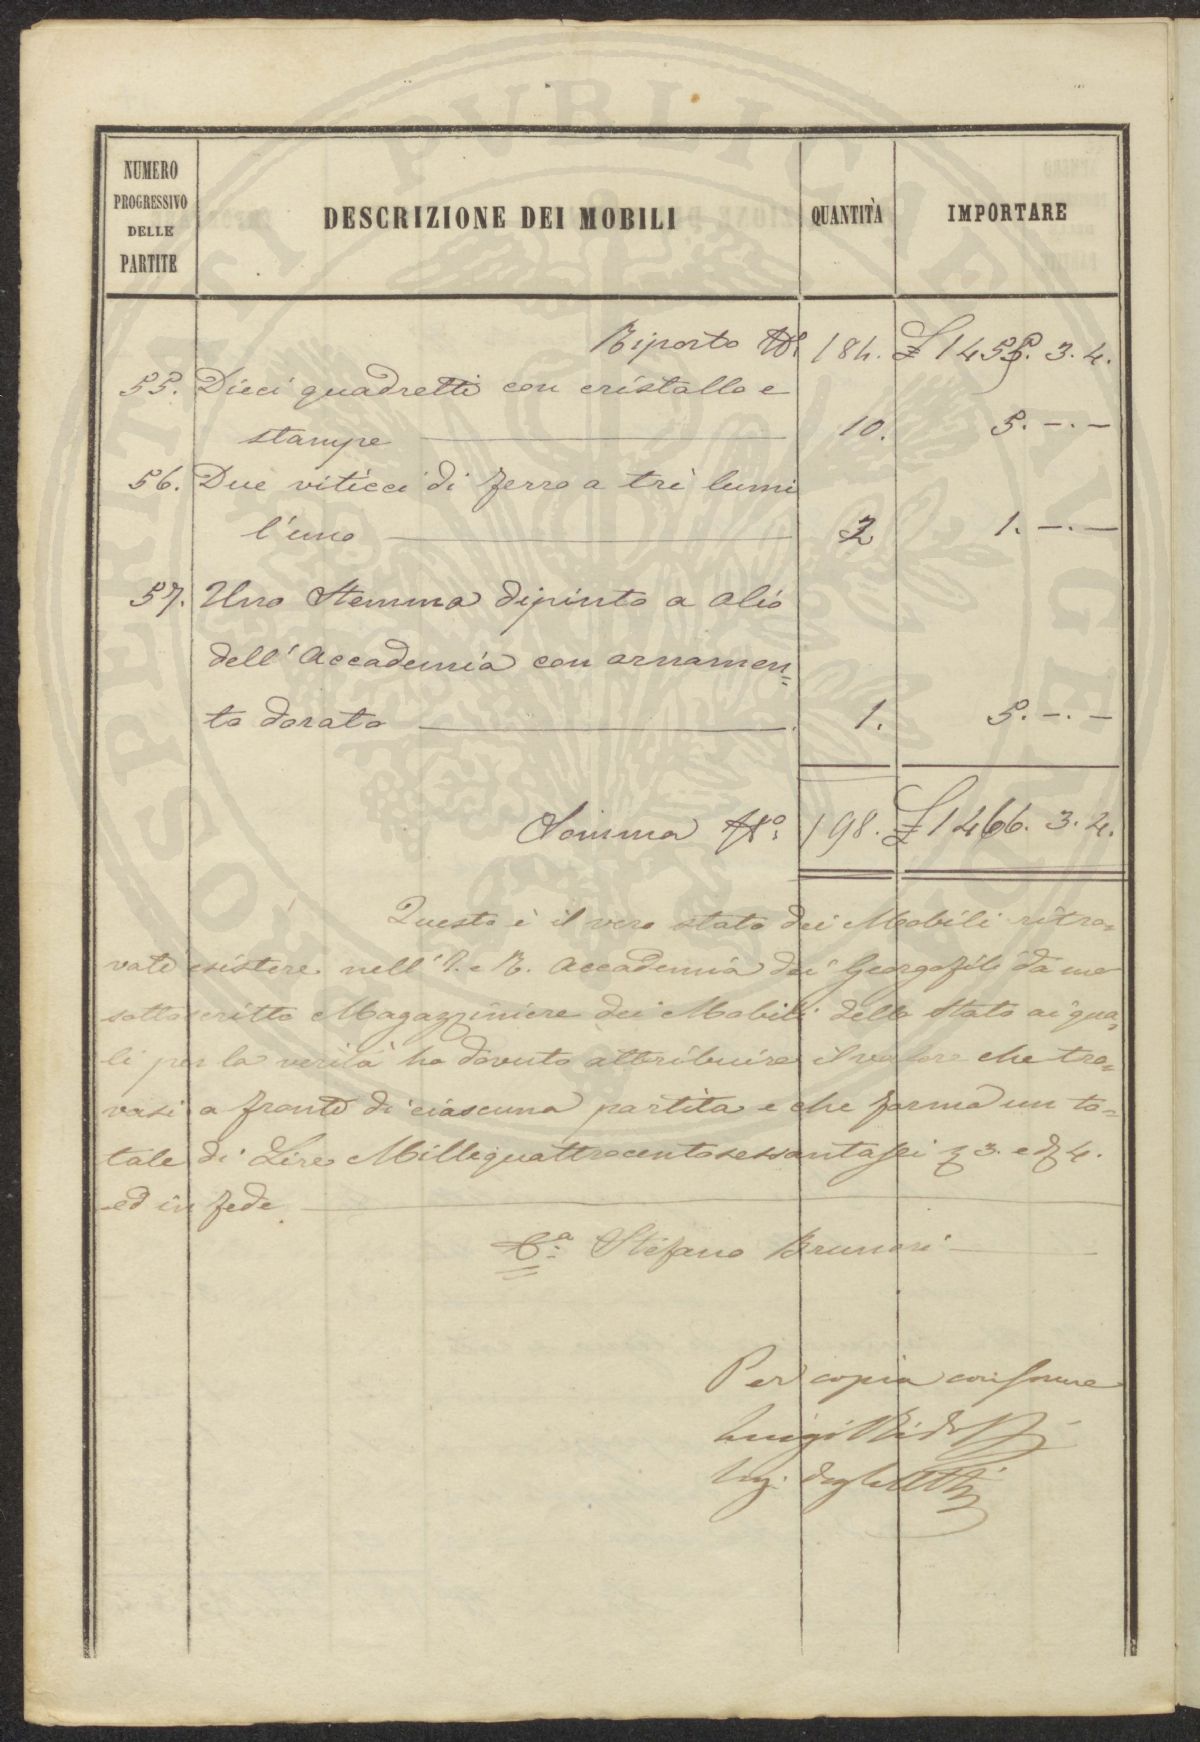 NUMERO PROGRESSIVO DELLE PARTITE
DESCRIZIONE DEI MOBILI
QUANTITÀ
IMPORTARE
Riporto N.° 184. £ 1455. 3. 4.
55. Dieci quadretti con cristallo e
stampe 10. 5. —. —
56. Due viticci di ferro a tre lumi
l'uno 2 1. —. —
57. Uno Stemma dipinto a olio
dell'Accademia con ornamen=
to dorato 1. 5. —. —
Somma N.° 198. £ 1466. 3. 4.
Questo è il vero stato dei Mobili ritro=
vati esistere nell'I. e R. Accademia dei Georgofili da me
sottoscritto Magazziniere dei Mobili dello Stato ai qua=
li per la verità ho dovuto attribuire il valore che tro=
vasi a fronte di ciascuna partita e che forma un to=
tale di Lire Millequattrocentosessantasei 3. e 4.
ed in fede
Stefano Brunori
Per copia conforme
Luigi
SPERITATI PVBLICAE AVGENDAE